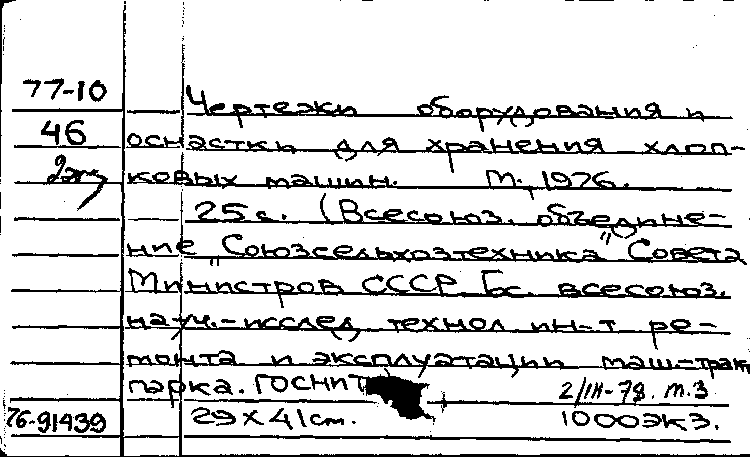 77-10 Чертежи оборудования и
46 оснастки для хранения хлоп-
2экз ковых машин. М., 1976.
25 с. (Всесоюз. объедине-
ние "Союзсельхозтехника" Совета
Министров СССР. Гос. всесоюз.
науч.-исслед. технол ин-т ре-
монта и эксплуатации маш.-тракт
парка. ГОСНИТ 2/III-78. т.3
76-91439 29 x 41 см. 1000 экз.